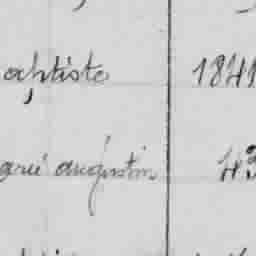 aptiste 1841
arié augustin 43